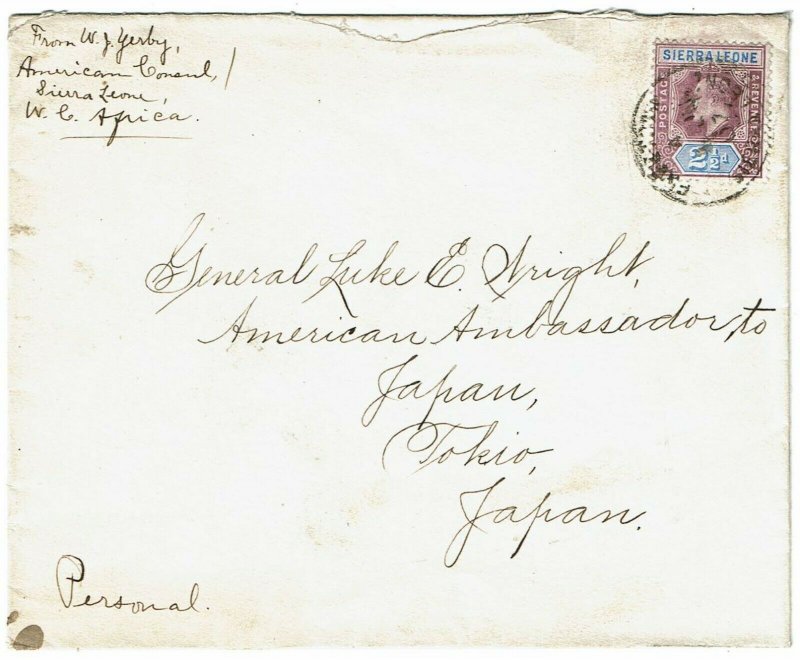 From W. J. Yerby,
American Consul,
Sierra Leone,
W. C. Africa.
SIERRA LEONE
POSTAGE
& REVENUE
2½d
General Luke E. Wright,
American Ambassador, to
Japan,
Tokio,
Japan.
Personal.